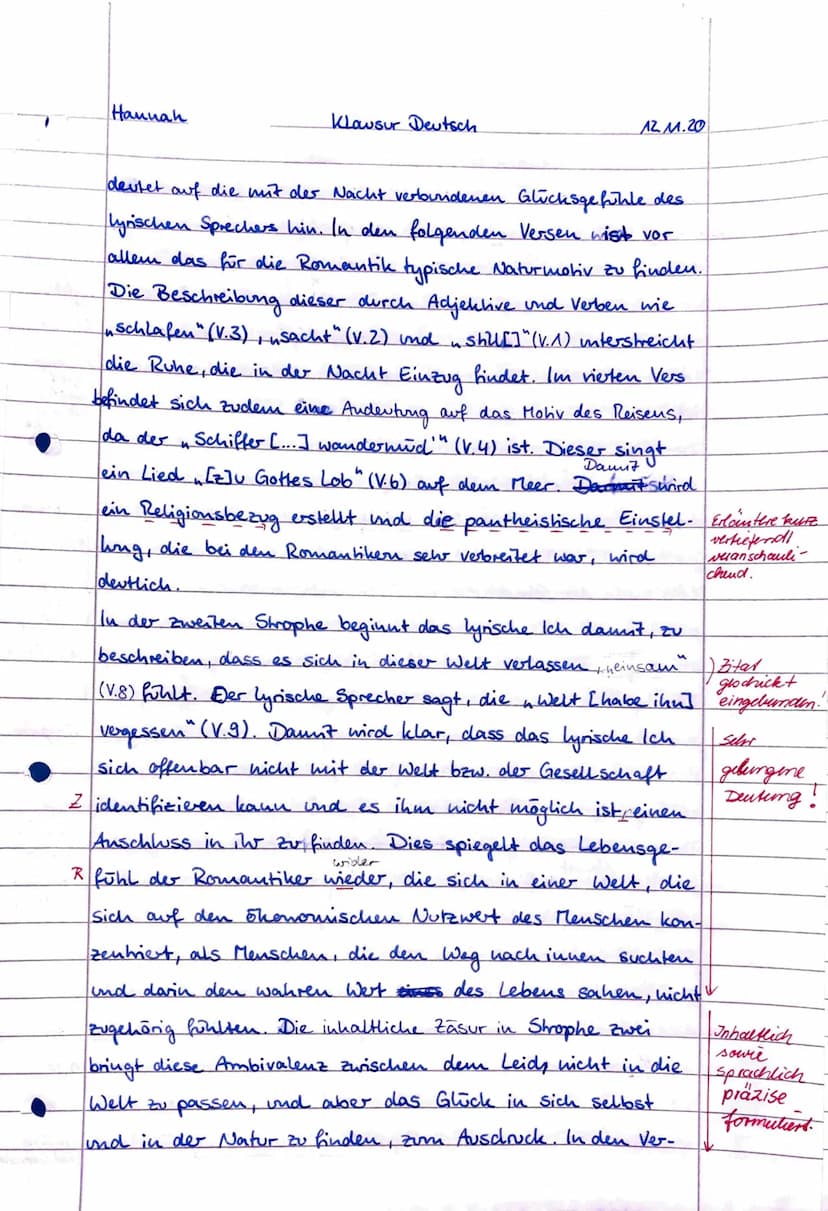 Hannah Klausur Deutsch 12.11.20
deutet auf die mit der Nacht verbundenen Glücksgefühle des
lyrischen Sprechers hin. In den folgenden Versen ist vor
allem das für die Romantik typische Naturmotiv zu finden.
Die Beschreibung dieser durch Adjektive und Verben wie
„schlafen“ (V.3), „sacht“ (V.2) und „still[]“ (V.1) unterstreicht
die Ruhe, die in der Nacht Einzug findet. Im vierten Vers
befindet sich zudem eine Andeutung auf das Motiv des Reisens,
da der „Schiffer [...] wandermüd'“ (V.4) ist. Dieser singt
Damit
ein Lied „[z]u Gottes Lob“ (V.6) auf dem Meer. Damit wird
ein Religionsbezug erstellt und die pantheistische Einstel-
Erläutere kurz
lung, die bei den Romantikern sehr verbreitet war, wird
vertiefend/
veranschauli-
deutlich.
chend.
In der zweiten Strophe beginnt das lyrische Ich damit, zu
beschreiben, dass es sich in dieser Welt verlassen, „einsam“
Zitat
geschickt
(V.8) fühlt. Der lyrische Sprecher sagt, die „Welt [habe ihn]
eingebunden!
vergessen“ (V.9). Damit wird klar, dass das lyrische Ich
Sehr
sich offenbar nicht mit der Welt bzw. der Gesellschaft
gelungene
Z identifizieren kann und es ihm nicht möglich ist, einen
Deutung!
Anschluss in ihr zu finden. Dies spiegelt das Lebensge-
wider
R fühl der Romantiker wieder, die sich in einer Welt, die
sich auf den ökonomischen Nutzwert des Menschen kon-
zentriert, als Menschen, die den Weg nach innen suchten
und darin den wahren Wert des Lebens sahen, nicht
zugehörig fühlten. Die inhaltliche Zäsur in Strophe zwei
Inhaltlich
sowie
bringt diese Ambivalenz zwischen dem Leid, nicht in die
sprachlich
Welt zu passen, und aber das Glück in sich selbst
präzise
formuliert.
und in der Natur zu finden, zum Ausdruck. In den Ver-